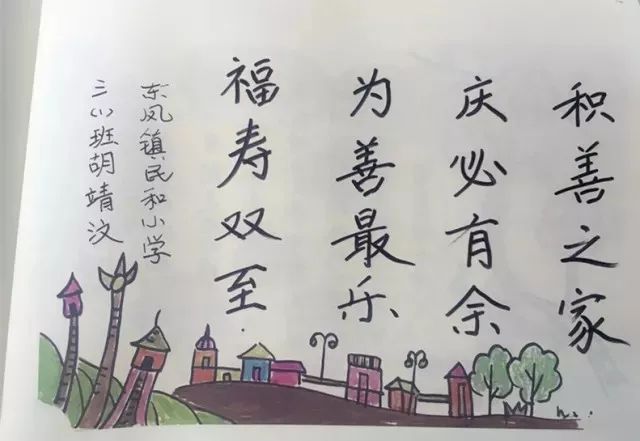 积善之家
庆必有余
为善最乐
福寿双至
东风镇民和小学
三(1)班胡靖汶